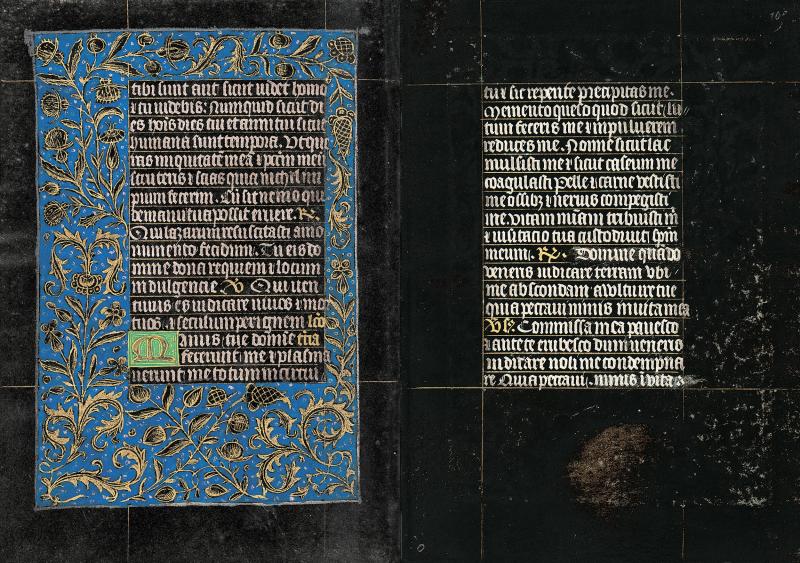 tibi sunt aut sicut uidet homo
i tu uidebis: Numquid sicut di
es hois dies tui et anni tui sicut
humana sunt tempora. Ut que
ras iniquitatē meā ⁊ pctm̄ meū
scruteris ⁊ scias quia nichil im
pium fecerim. Cū sit nemo qui
de manu tua possit eruere. R.
Qui lazarum resuscitasti a mo
numento fetidum. Tu eis do
mine dona requiem ⁊ locum
indulgencie V Qui uen
turus es iudicare uiuos ⁊ mor
tuos. ⁊ seculum per ignem lco
Manus tue domīe
fecerunt me ⁊ plasma
uerunt me totum in circui
tu ⁊ sic repente precipitas me.
Memento queso quod sicut lu
tum feceris me ⁊ in puluerem
reduces me. Nonne sicut lac
mulsisti me ⁊ sicut caseum me
coagulasti Pelle ⁊ carne vestisti
me ossibz ⁊ neruis compegisti
me. vitam miām tribuisti m̄
⁊ uisitacio tua custodiuit spm̄
meum. R. Domine quādo
veneris iudicare terram ubi
me abscondam a vultu ire tue
quia peccaui nimis in uita mea
Vs. Commissa mea pauesco
⁊ ante te erubesco dum veneris
iudicare noli me condempna
re Quia peccaui. nimis ī vita